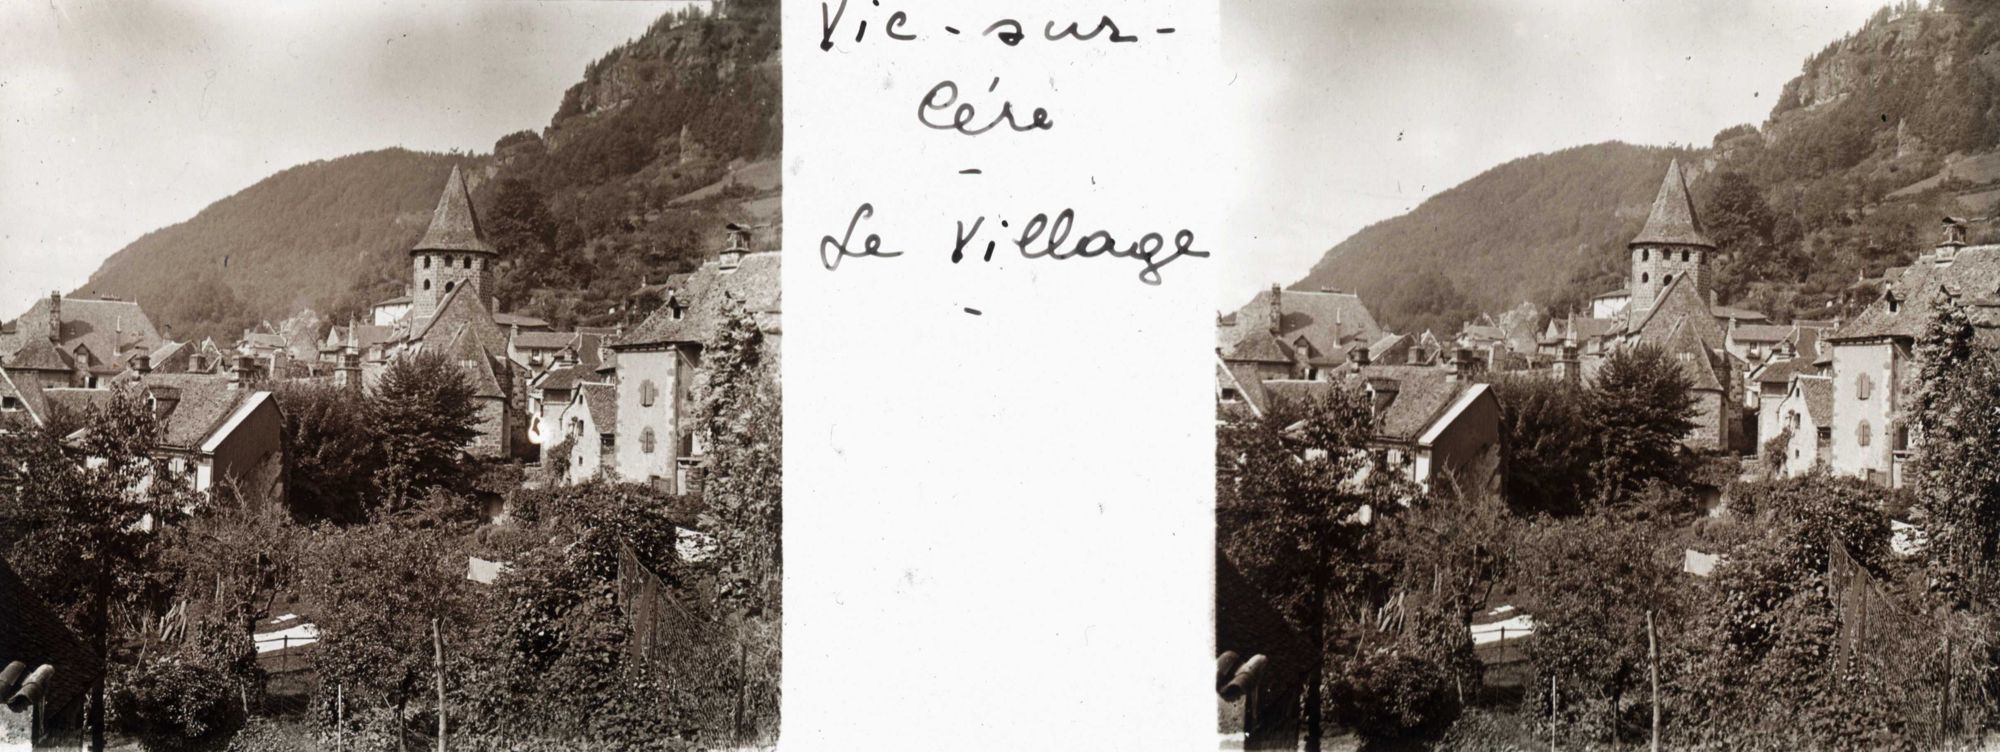 Vic-sur-
Cére
-
Le Village
-